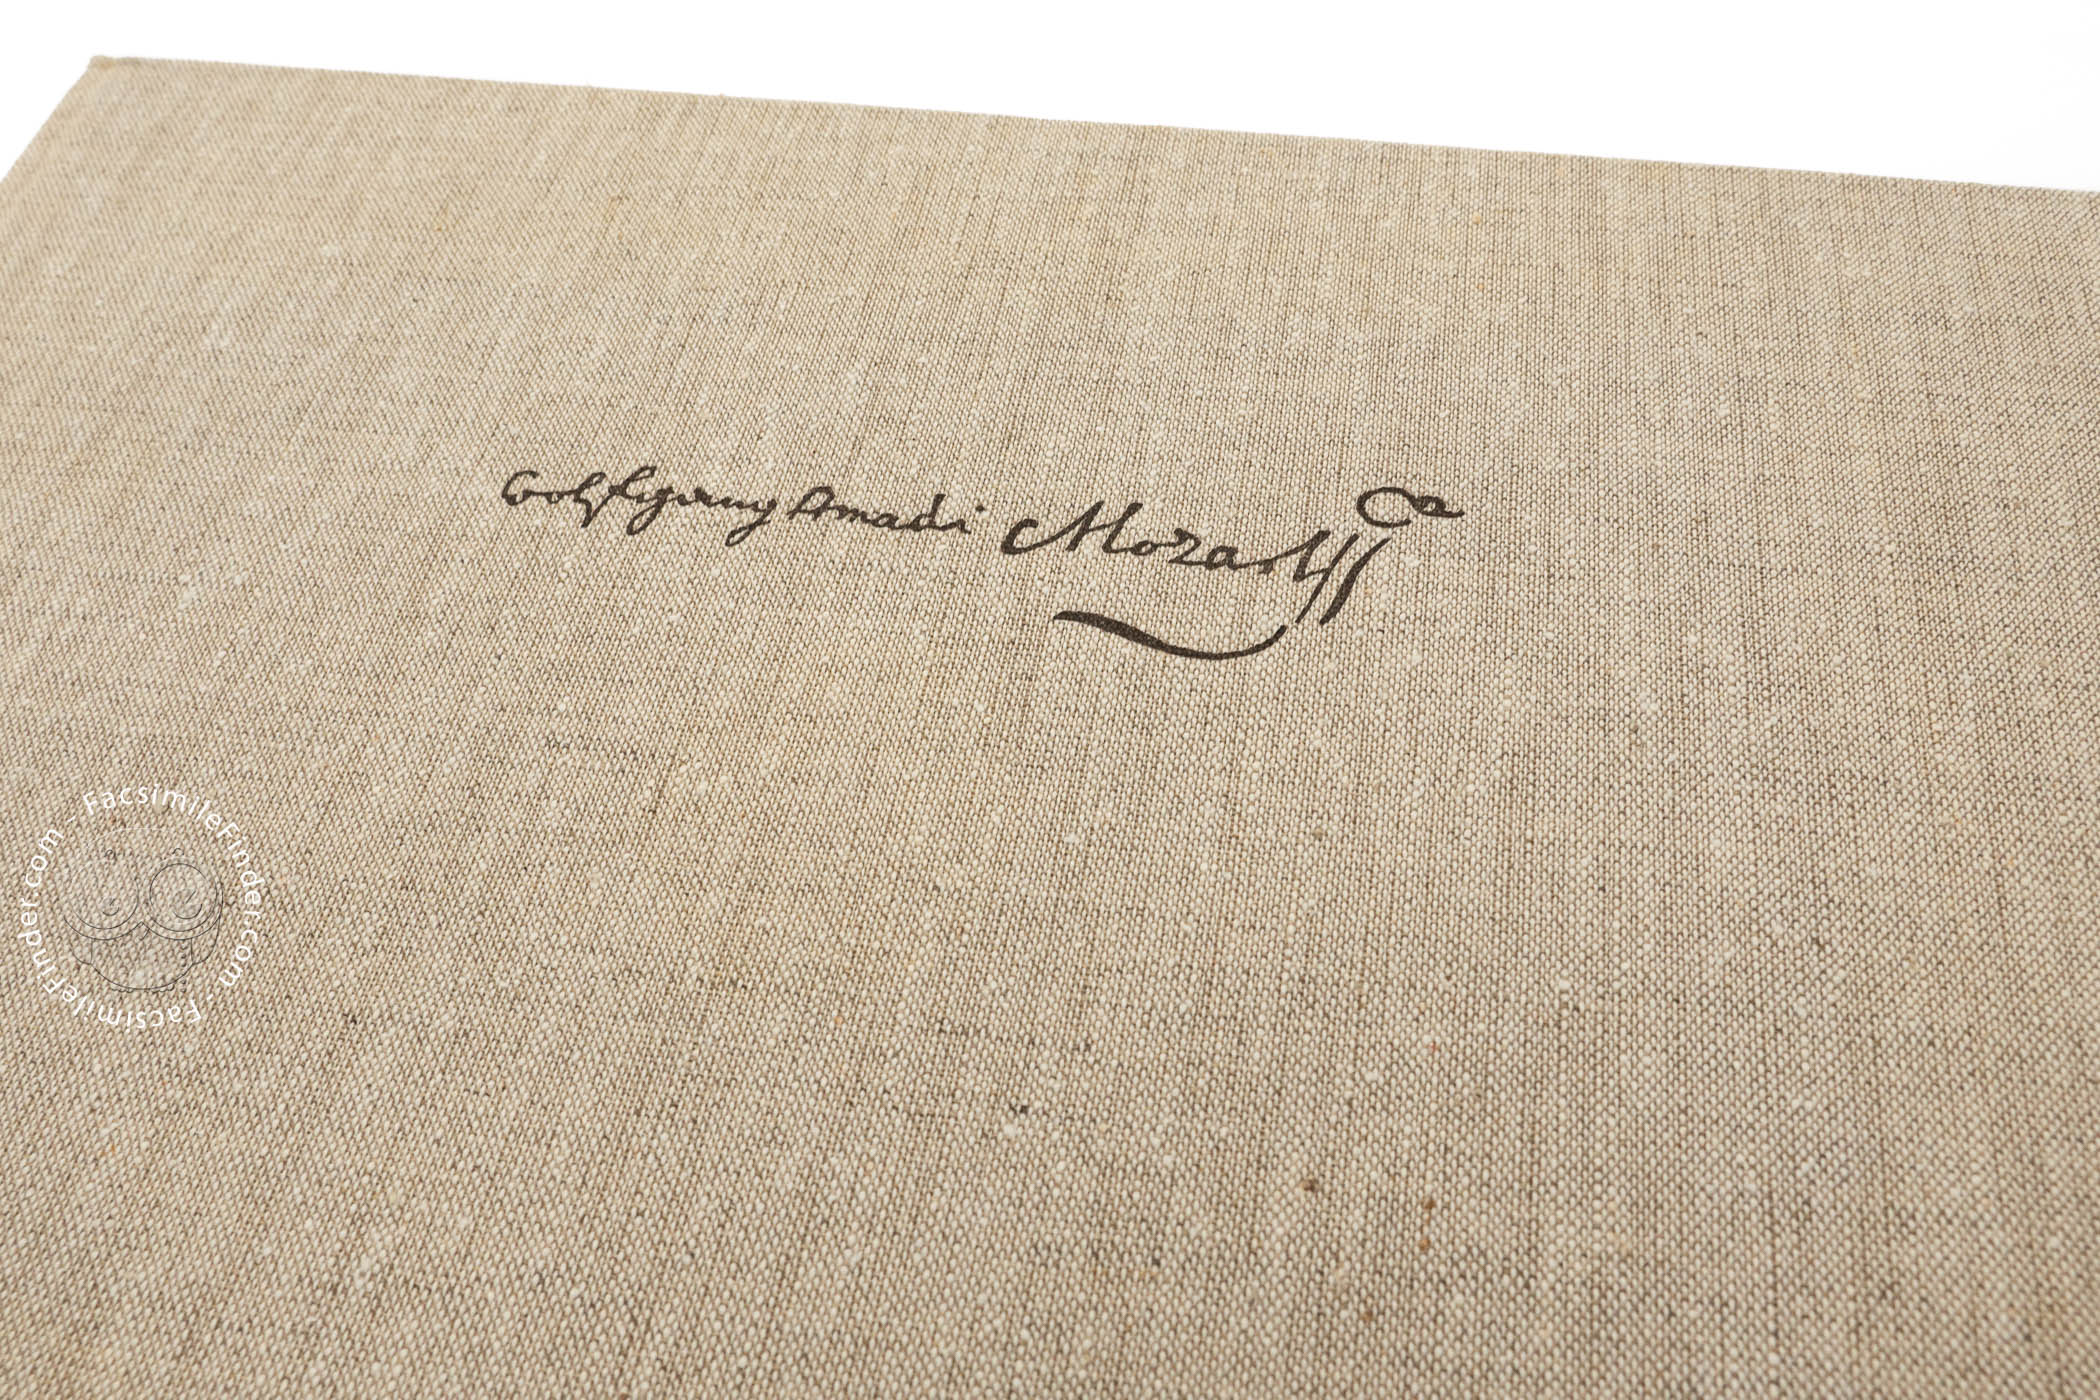 Wolfgang Amadi Mozart
FacsimileFinder.com - FacsimileFinder.com -